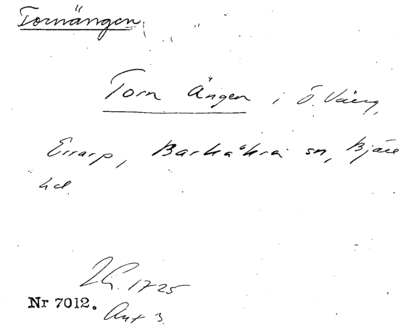 Tornängen
Torn Ängen i Ö. Vång,
Errarp, Barkåkra sn, Bjäre
hd
1725
Nr 7012.
Akt 3